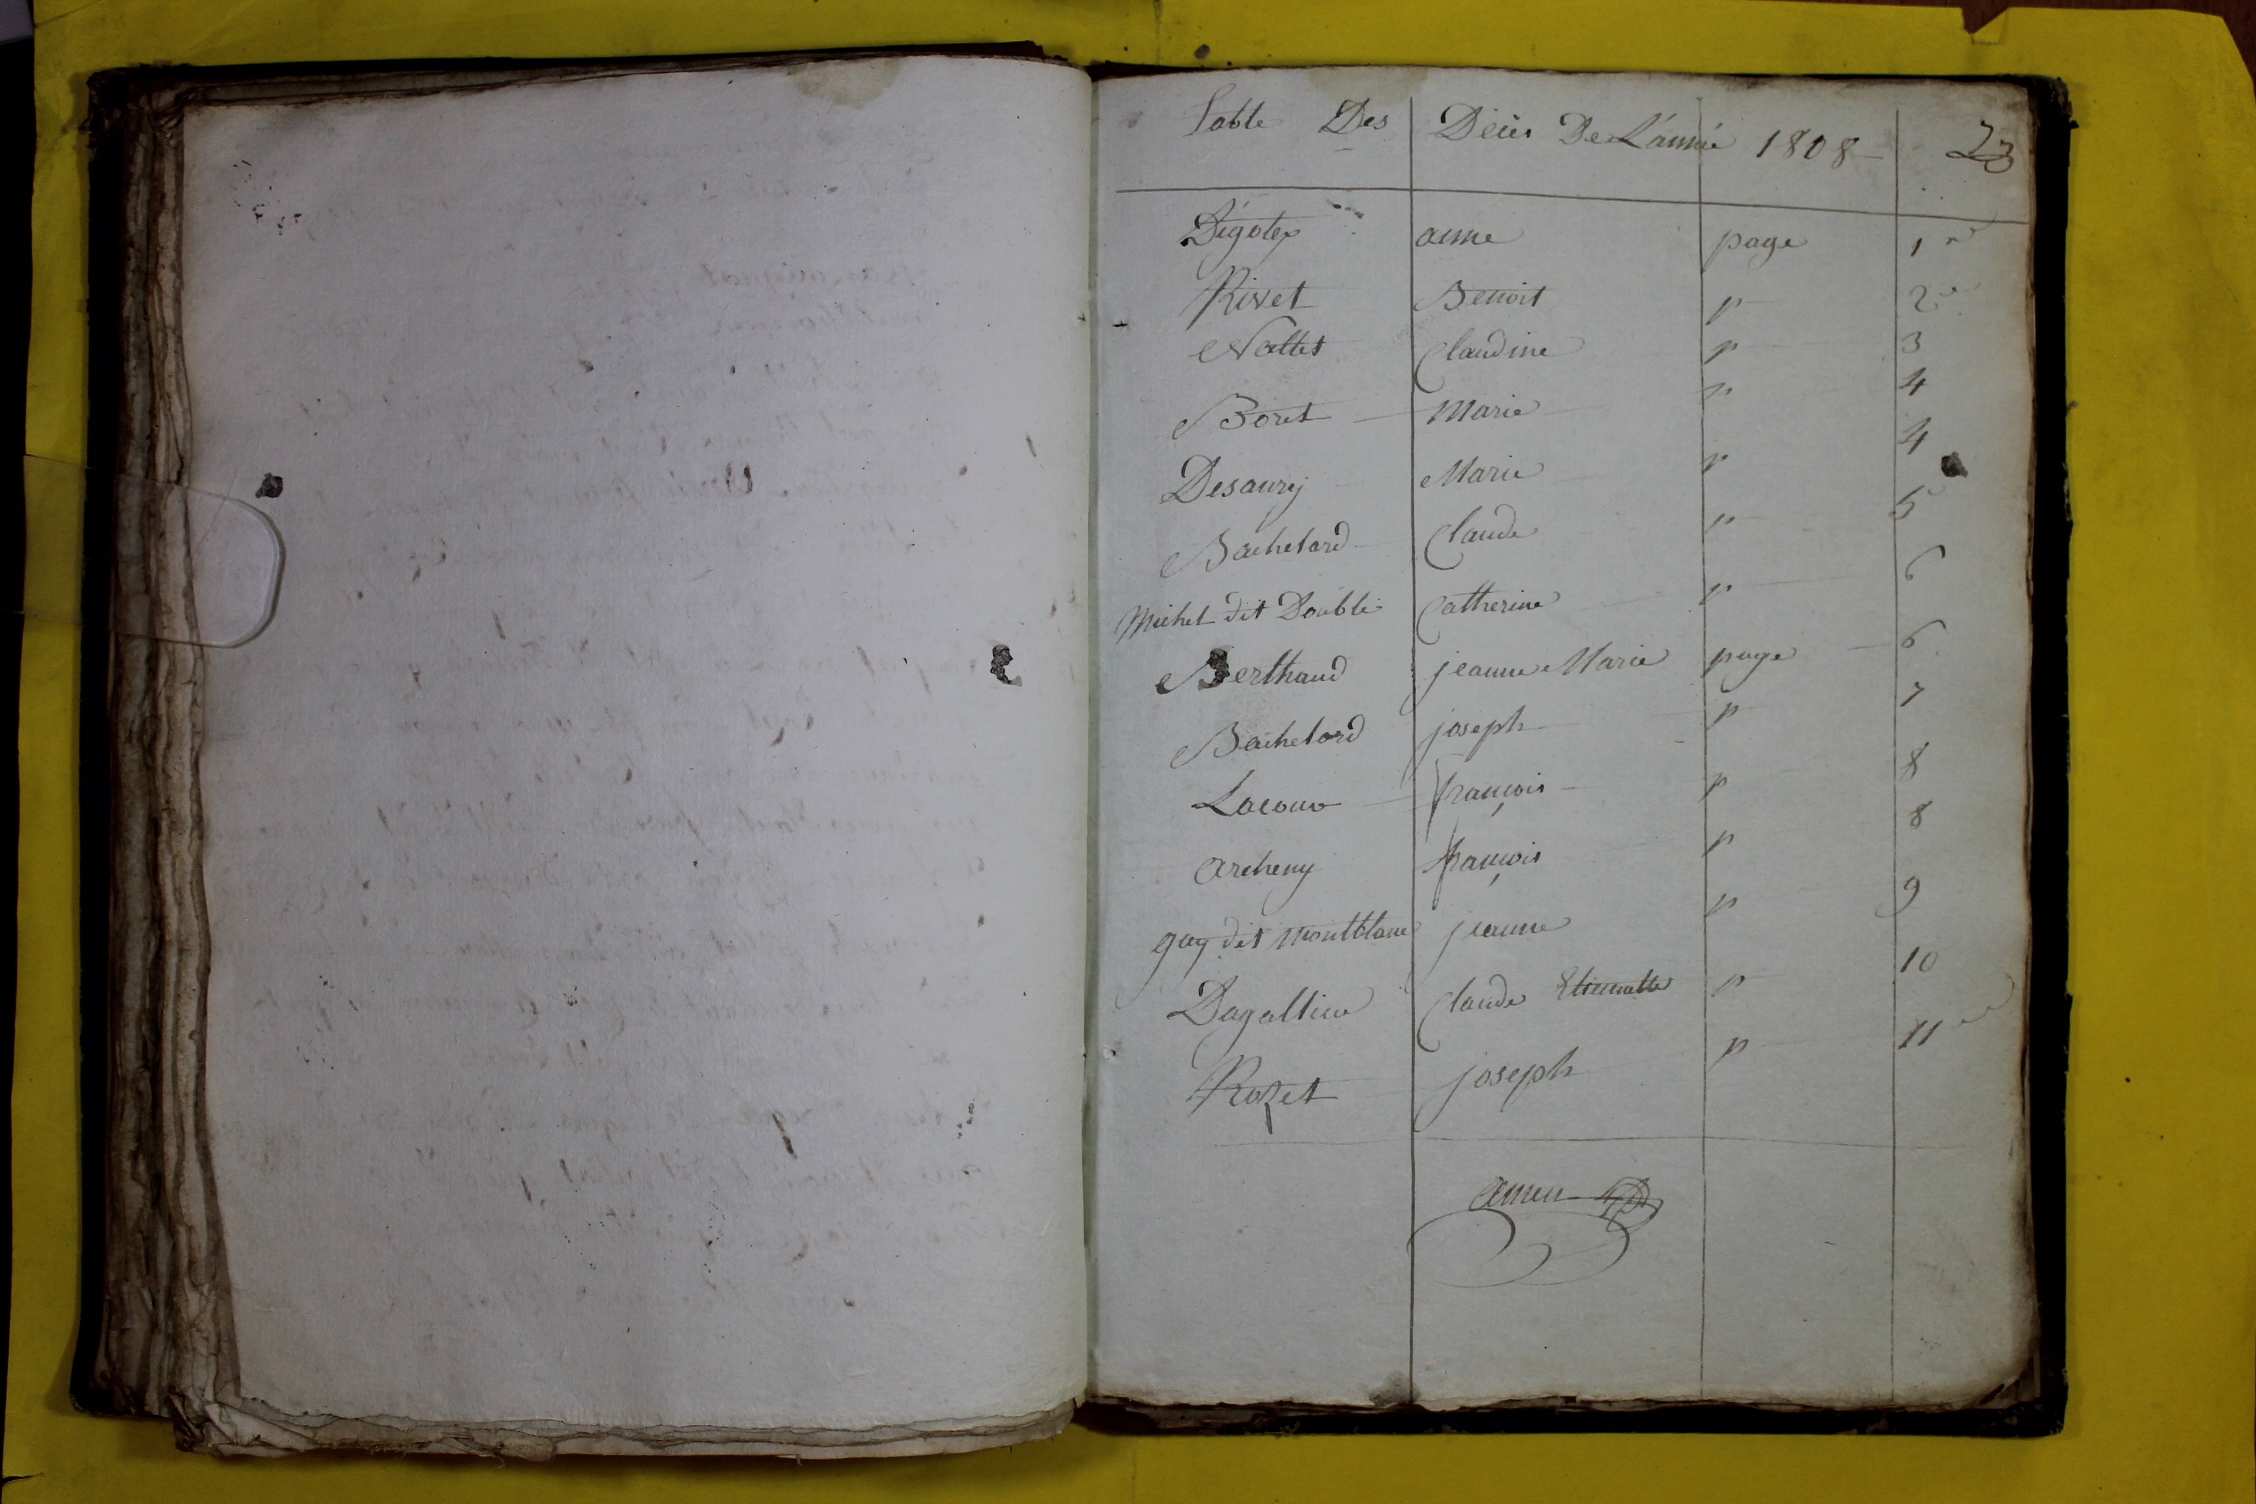 Table Des Décès De L'année 1808 23
Digotex anne page 1re
Rivet Benoit p 2e
Nattet Claudine p 3
Boret Marie p 4
Desaury Marie p 4
Bachelard Claude p 5
Michel dit Doublé Catherine p 6
Berthaud jeanne Marie page 6
Bachelard joseph p 7
Lacour françois p 8
archeny françois p 8
guy dit montblanc jeanne p 9
Dagallier Claude Etiennette p 10
Rozet joseph p 11me